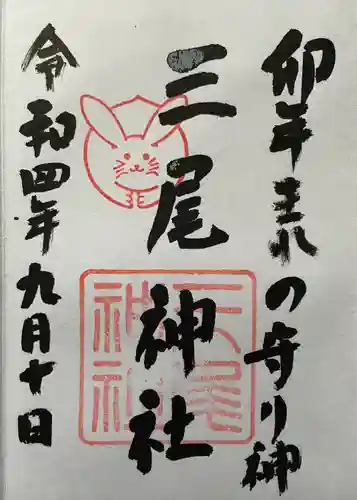 卯年生れの守り神
三尾神社
三尾神社
令和四年九月十日